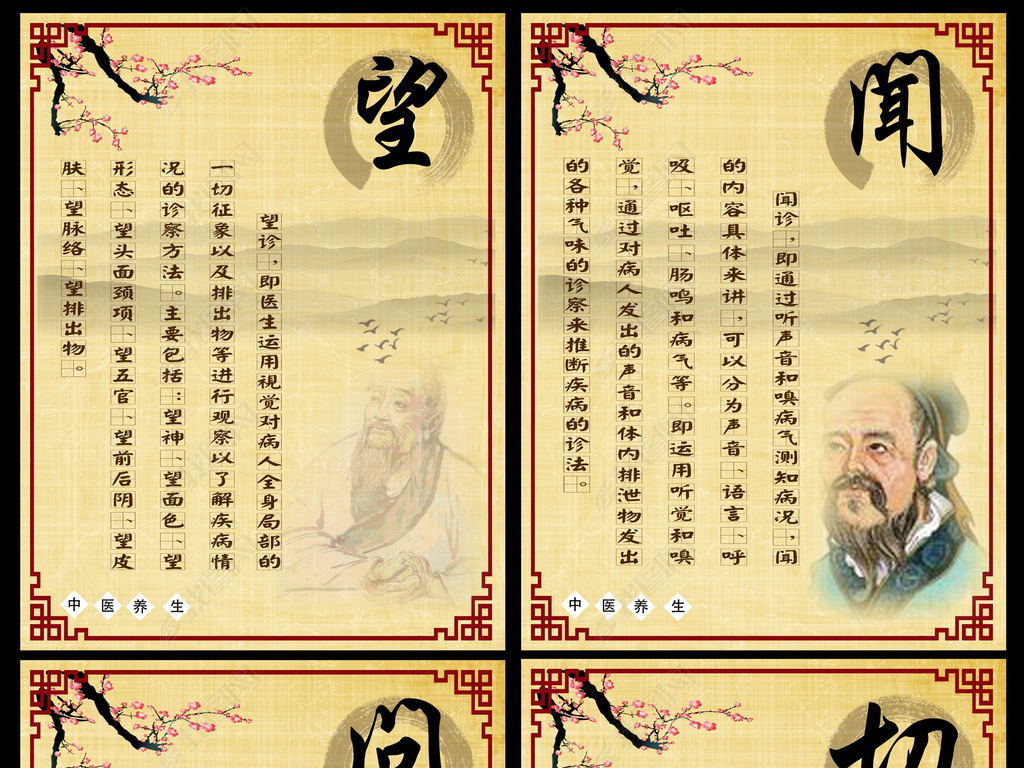 望
望诊，即医生运用视觉对病人全身局部的
一切征象以及排出物等进行观察以了解疾病情
况的诊察方法。主要包括：望神、望面色、望
形态、望头面颈项、望五官、望前后阴、望皮
肤、望脉络、望排出物。
中医养生
闻
闻诊，即通过听声音和嗅病气测知病况，闻
的内容具体来讲，可以分为声音、语言、呼
吸、呕吐、肠鸣和病气等。即运用听觉和嗅
觉，通过对病人发出的声音和体内排泄物发出
的各种气味的诊察来推断疾病的诊法。
中医养生
问
切